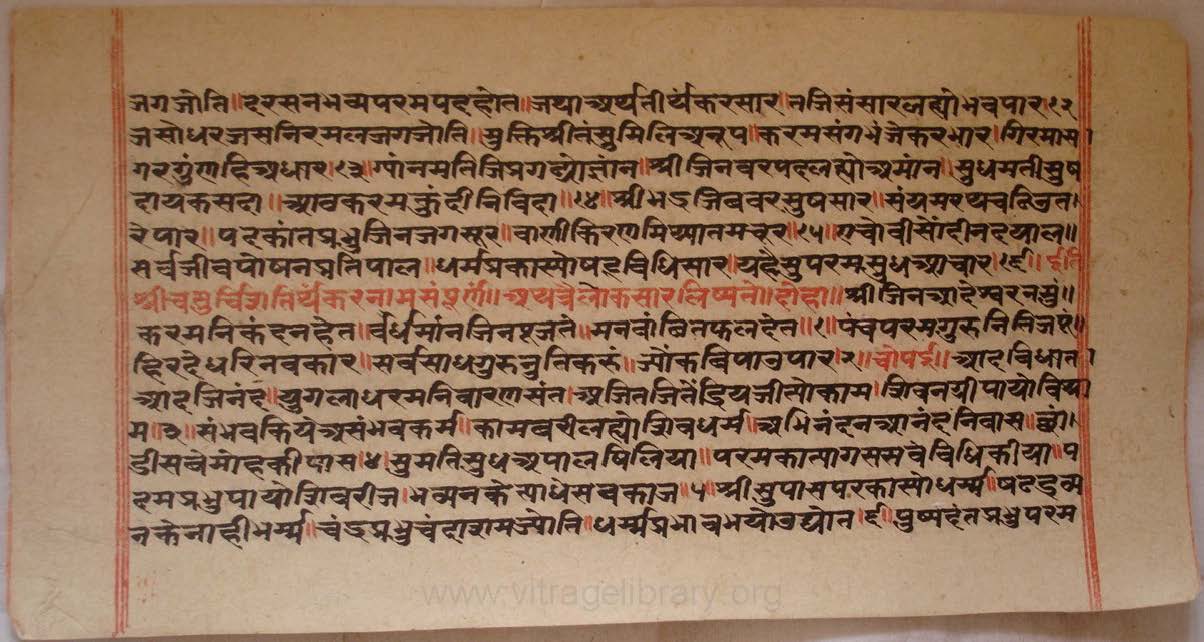 जगजोति॥दरसनभव्यपरमपदहोत॥जयाच्यर्थतीर्थंकरसार॥तजिसंसारलह्योभवपार॥१२
जसोधरजसनिरमलजगजोति॥मुक्तिप्रीतंसुमिलिअनूप॥करमसंगभंजेकरभार॥गिरमास।
गरगुंणहिअधार॥१३॥ग्यांनमतिजिप्रगट्योज्ञांन॥श्रीजिनवरपदलह्योअमांन॥सुधमतीसुष
दायकसदा॥श्रावकरमकुंदीनिविदा॥१४॥श्रीभद्रजिववरसुषसार॥संयमरथचढिउत।
रेपार॥पदकांतप्रभुजिनजगसूर॥वाणीकिरणमिथ्यातमचूर॥१५॥एचोवीसोंदीनदयाल॥
सर्वजीवपोषनप्रतिपाल॥धर्मप्रकास्योषटविधिसार॥यहेसुपरमसुधआचार॥१६॥इति
श्रीचतुर्विंशतिर्थंकरनामसंपूर्णं॥अथत्रैलोकसारलिष्यते॥दोहा॥श्रीजिनआदेस्वरनमुं॥
करमनिकंदनहेत॥वर्धमांनजिनपूजतं॥मनवांछितफलदंत॥१॥पंचपरमगुरुनितिजपं॥
हिरदेधरिनवकार॥सर्वसाधगुरुनुतिकरुं॥ज्योंकविपाउपार॥२॥चोपई॥आदविधात।
आदजिनंद॥युगलाधरमनिवारणसंत॥अजितजितेंद्रियजीत्योकाम॥शिवनयीपायोविश्रा
म॥३॥संभवकियेअसंभवकर्म॥कामछरीलह्योशिवधर्म॥अभिनंदनआनंदनिवास॥छां।
डीसवेमोहकीपास॥४॥सुमतिसुधअपालषिलिया॥परमकात्यागससवेविधिकीया॥प
दमप्रभुपायोशिवरीज॥भव्यनकेसाधेसवकाज॥५॥श्रीसुपासपरकास्योधर्म्म॥षटद्रव्य
नकेनाहीभर्म्म॥चंद्रप्रभुचंदारामज्योति॥धर्म्मप्रभावभयोउद्योत॥६॥पुष्पदंतप्रभुपरम
www.vitragelibrary.org